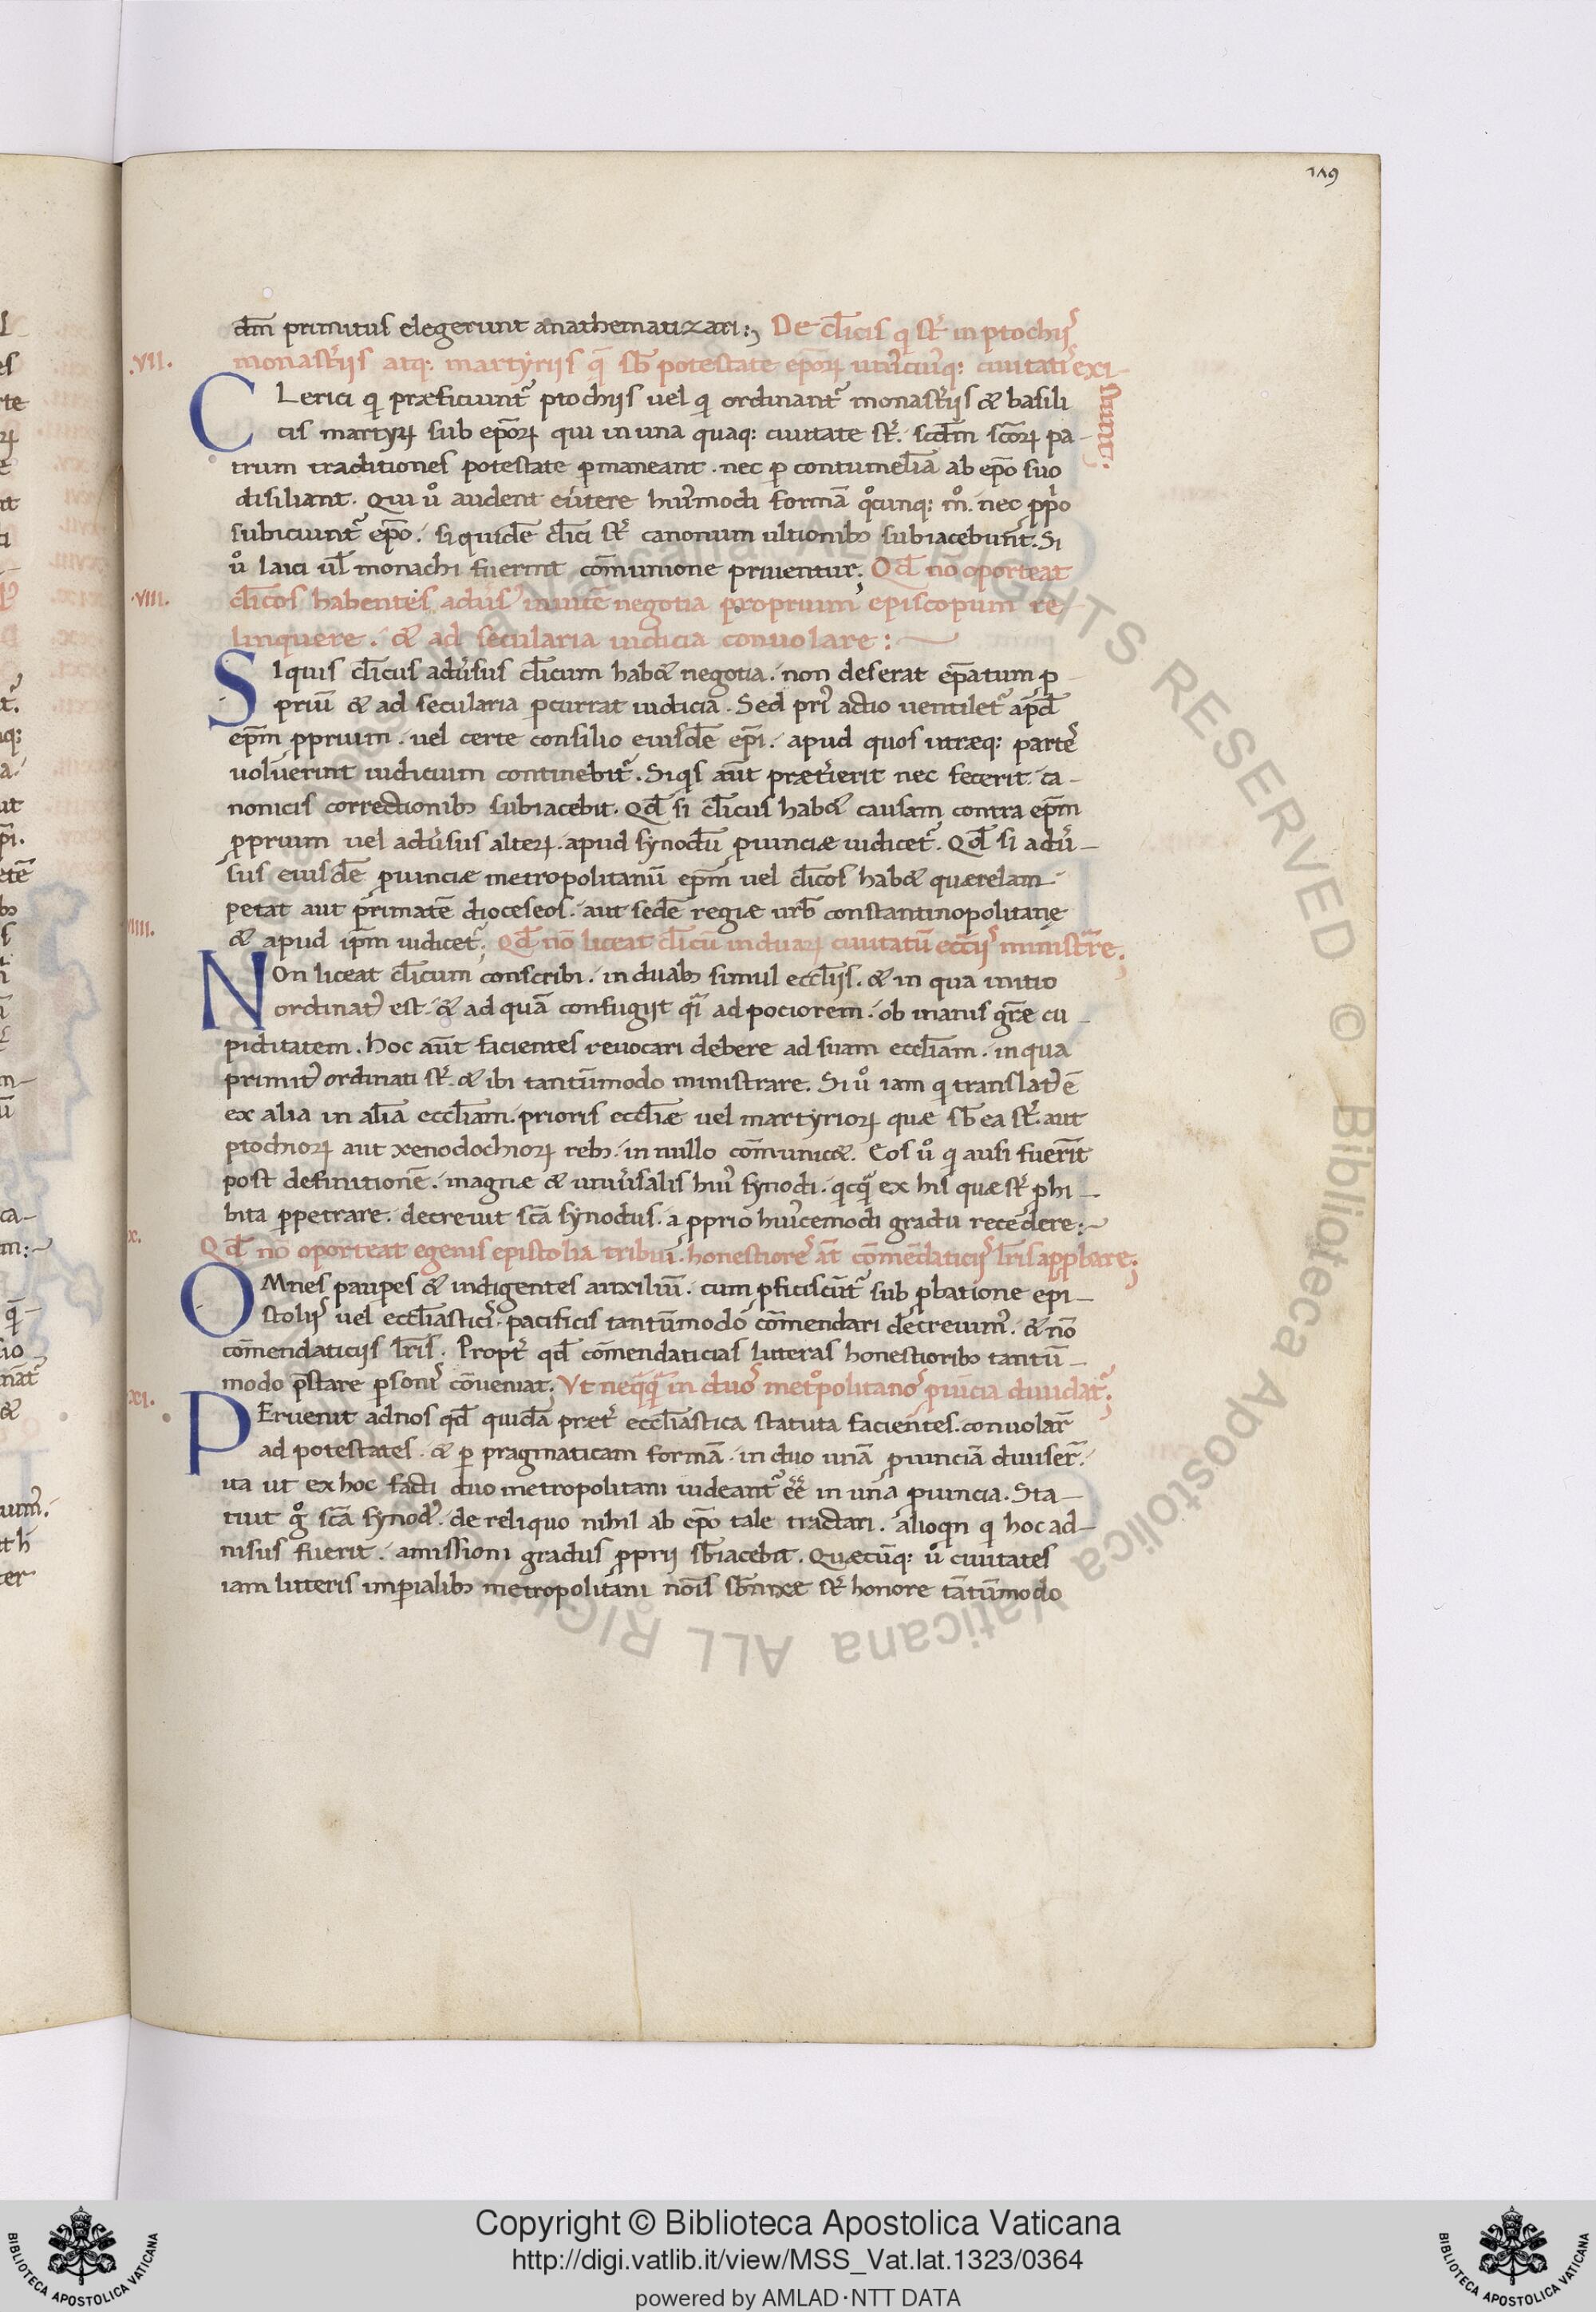 189
dm̄ primitus elegerunt anathematizari:, De cl̄icis qi st̄ in ptochiis
.VII. monast̄iis atq: martyriis q̄ sb̄ potestate ep̄oꝝ uni᾽cui᾽q: ciuitatis exi-
stunt.
CLerici qi præficiunt᾽ ptochiis uel qi ordinant᾽ monast̄iis & basili
cis martyꝝ sub ep̄oꝝ qui in una quaq: ciuitate st̄. scd̄m sc̄oꝝ pa-
trum traditiones potestate ꝑmaneant. nec ꝑ contumeliā ab ep̄o suo
disiliant. Qui uº audent eu᾽tere hui᾽modi formā qºcunq: mº. nec ꝓpio
subiciunt᾽ ep̄o. si quidē cl̄ici st̄ canonum ultionibꝫ subiacebunt. Si
uº laici ul̄ monachi fuerint cōmunione priuentur; Qd̄ nō oporteat
.VIII. cl̄icos habentes adu᾽s᾽ inuicē negotia proprium episcopum re-
linquere. & ad secularia iudicia conuolare:
SI quis cl̄icus adu᾽sus cl̄icum hab& negotia. non deserat ep̄atum ꝓ-
priū & ad secularia ꝑcurrat iudicia. Sed pri᾽ actio uentilet᾽ apd̄
ep̄m ꝓprium. uel certe consilio eiusdē ep̄i. apud quos utræq: partes
uoluerint iudicium continebit᾽. Si qis aut̄ præt᾽ierit nec fecerit. ca-
nonicis correctionibꝫ subiacebit. Qd̄ si cl̄icus hab& causam contra ep̄m
ꝓprium uel adu᾽sus alteꝝ. apud synodū ꝓuinciæ iudicet᾽. Qd̄ si adu᾽-
sus eiusdē ꝓuinciæ metropolitanū ep̄m uel cl̄icos hab& quærelam
petat aut p̄rimatē dioceseos. aut sedē regiæ urb̄ constantinopolitanę
VIIII. & apud ip̄m iudicet᾽; Qd̄ nō liceat cl̄icū in duaꝝ ciuitatū eccl̄iis ministr̄re;
NOn liceat cl̄icum conscribi. in duabꝫ simul eccl̄iis. & in qua initio
ordinat᾽ est. & ad quā confugiit qi ad pociorem. ob inanis gl̄æ cu-
piditatem. Hoc aut̄ facientes reuocari debere ad suam eccl̄iam. in qua
primit᾽ ordinati st̄. & ibi tantūmodo ministrare. Si uº iam qi translat᾽ ē
ex alia in aliā eccl̄iam. prioris eccl̄iæ uel martyrioꝝ quæ sb̄ ea st̄. aut
ptochioꝝ aut xenodochioꝝ rebꝫ. in nullo cōmunic&. Eos uº qi ausi fuerīt
post definitionē. magnæ & uniu᾽salis hui᾽ synodi. qicq̄ ex his quæ st̄ ꝓhi-
bita ꝑpetrare. decreuit sc̄a synodus. a ꝓprio hui᾽cemodi gradu recedere:
x. Qd̄ nō oporteat egenis epistolia tribui. honestiores aut̄ cōmēdaticiis lr̄is apꝓbare;
OMnes pauꝑes & indigentes auxiliū. cum ꝓficiscūt᾽ sub ꝓbatione epi-
stoliis uel eccl̄iasticis. pacificis tantūmodo cōmendari decreuim᾽. & nō
cōmendaticiis lr̄is. Propt᾽ qd̄ cōmendaticias litteras honestioribꝫ tantū-
XI. modo p̄stare ꝑsonis cōueniat; Vt neq̄q̄ in duos metºpolitanos ꝓuīcia diuidat᾽;
PEruenit ad nos qd̄ quidā præt᾽ eccl̄iastica statuta facientes. conuolar̄
ad potestates. & ꝑ pragmaticam formā. in duo unā ꝓuinciā diuiser̄.
ita ut ex hoc facti duo metropolitani uideant᾽ eē in una ꝓuincia. Sta-
tuit gº sc̄a synod᾽. de reliquo nihil ab ep̄o tale tractari. alioqin qi hoc ad-
nisus fuerit. amissioni gradus ꝓprii sb̄iacebit. Quæcūq: uº ciuitates
iam litteris imꝑialibꝫ metropolitani nōis sb̄nixæ st̄ honore tātūmodo
Copyright © Biblioteca Apostolica Vaticana
http://digi.vatlib.it/view/MSS_Vat.lat.1323/0364
powered by AMLAD·NTT DATA
BIBLIOTECA APOSTOLICA VATICANA
BIBLIOTECA APOSTOLICA VATICANA